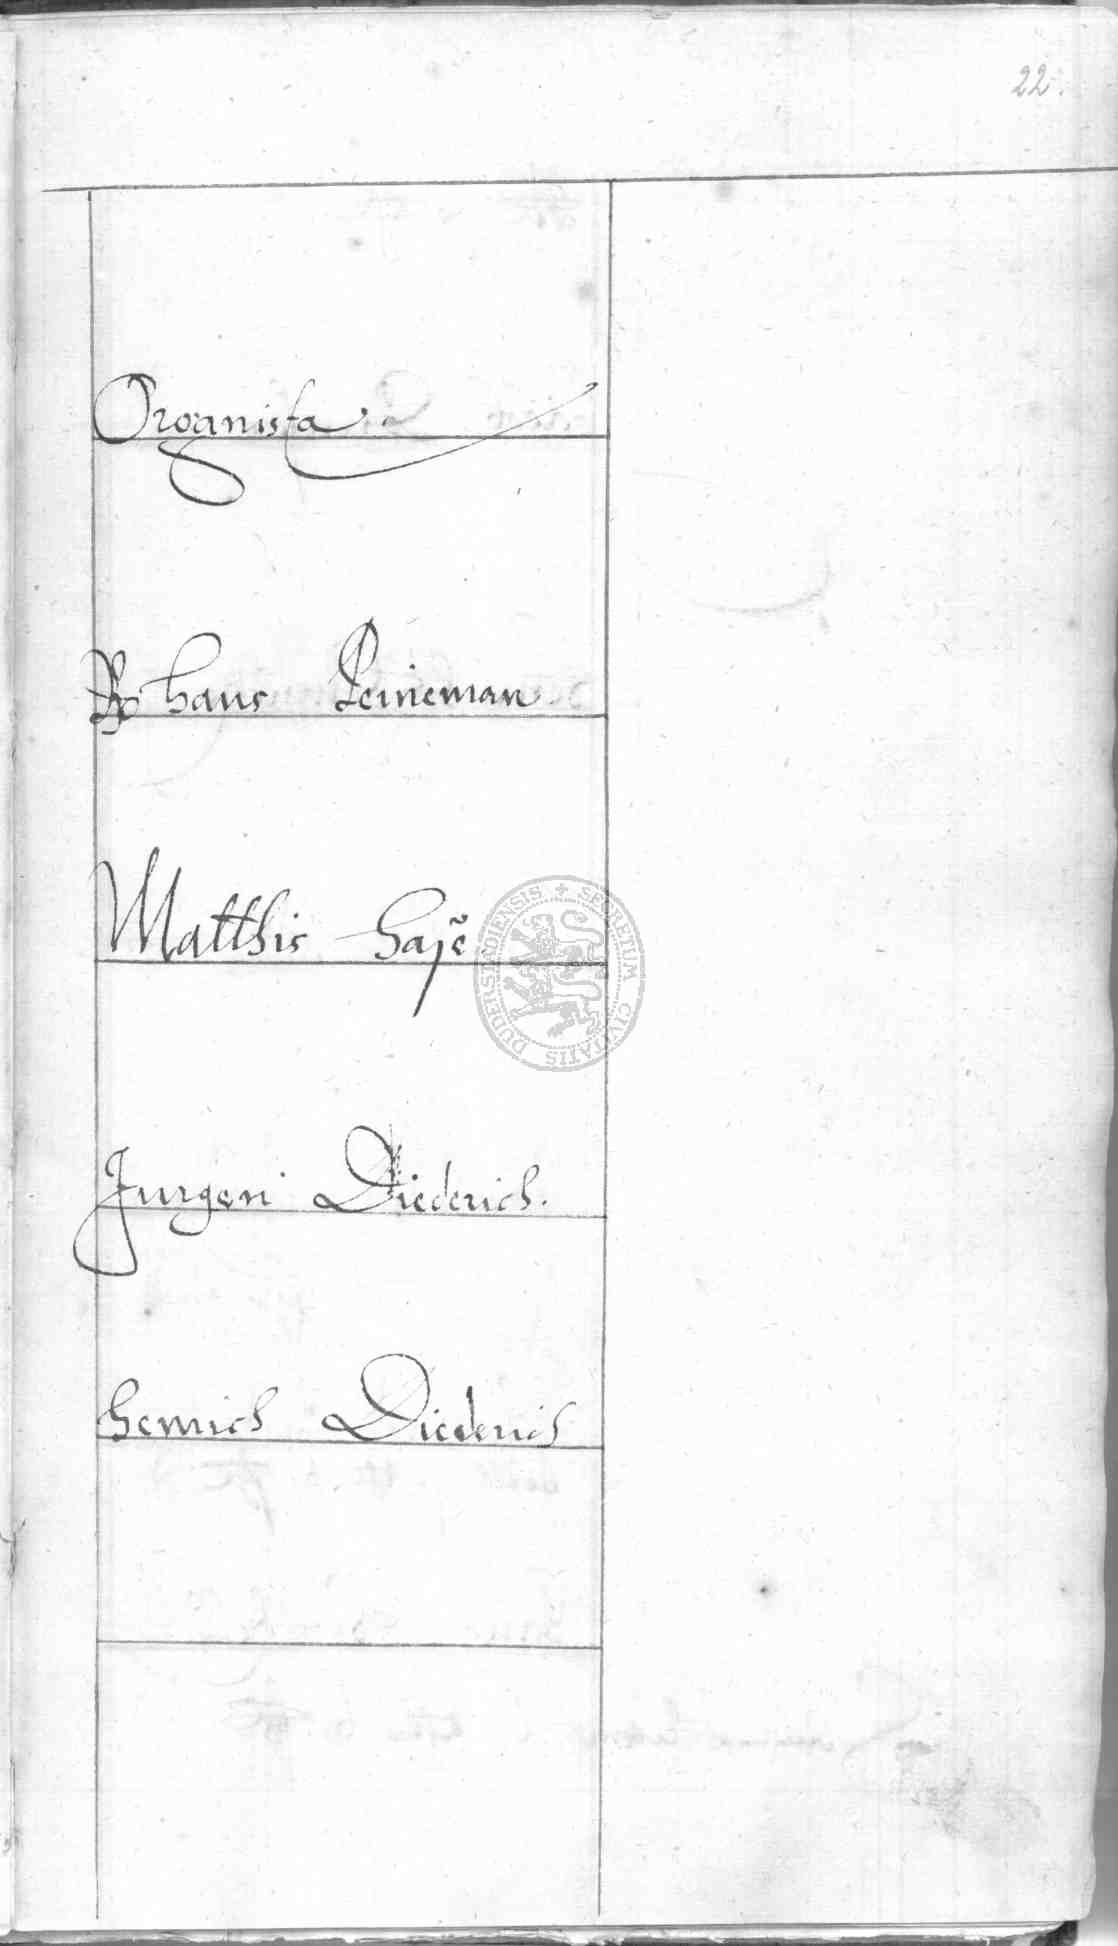 22.
Organista.
Hans Peineman
Matthis Hase
Jurgen Diederich.
Henrich Diederich
SECRETUM CIVITATIS DUDERSTADIENSIS